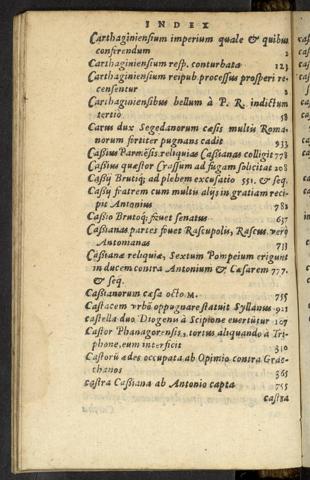 INDEX
Carthaginiensium imperium quale & quibus
conferendum 2
Carthaginiensium resp. conturbata 123
Carthaginiensium reipub. processus prosperi re-
censentur 2
Carthaginensibus bellum à P. R. indictum
tertiò 58
Carus dux Segedanorum cæsis multis Roma-
norum fortiter pugnans cadit 933
Caßius Parmēsis reliquias Caßianas colligit 778
Caßius quæstor Crassum ad fugam solicitat 208
Caßij Brutiq; ad plebem excusatio 551. & seq.
Caßij fratrem cum multis alijs in gratiam reci-
pit Antonius 782
Caßio Brutoq; fauet senatus 637
Caßianas partes fouet Rascupolis, Rascus verò
Antonianas 733
Caßianæ reliquiæ, Sextum Pompeium erigunt
in ducem contra Antonium & Cæsarem 777.
& seq.
Caßianorum cæsa octo M. 755
Castacem vrbē oppugnare statuit Syllanus 921
castella duo Diogenis à Scipione euertūtur 107
Castor Phanagorensis, tortus aliquando à Tri-
phone, eum interficit 310
Castorū ædes occupata ab Opimio contra Grac-
chanos 365
castra Caßiana ab Antonio capta 755
castra